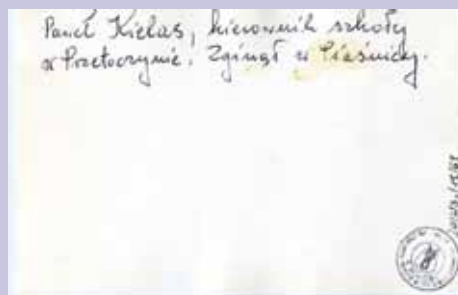 Paweł Kielas, kierownik szkoły
w Przetoczynie. Zginął w Piaśnicy.